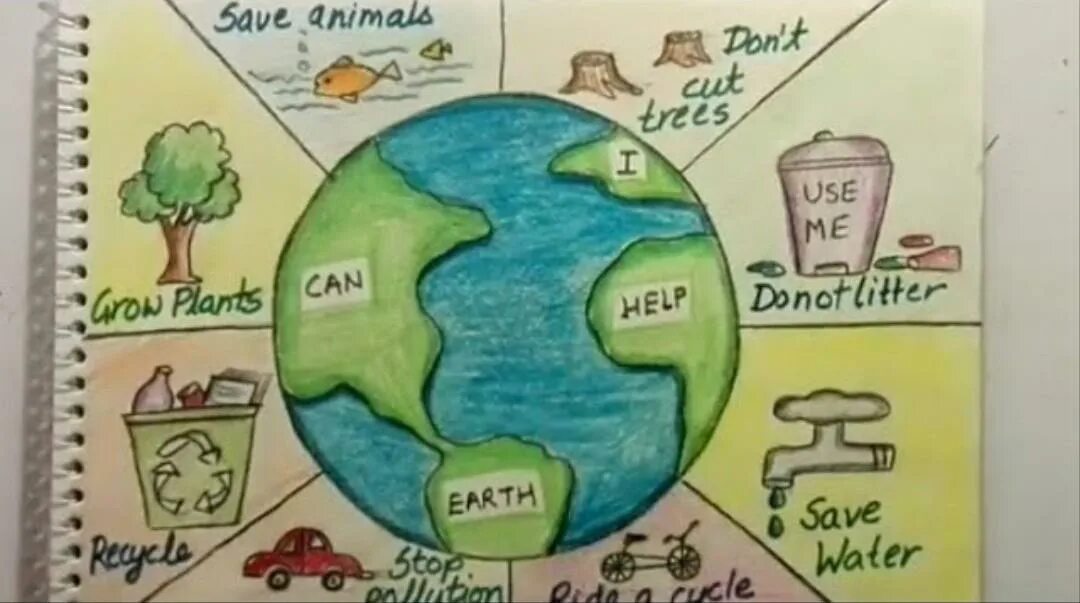 Save animals
Don't
cut
trees
I
USE
ME
CAN
HELP
Grow Plants
Do not litter
EARTH
Save
Water
Recycle
Stop
pollution
Ride a cycle